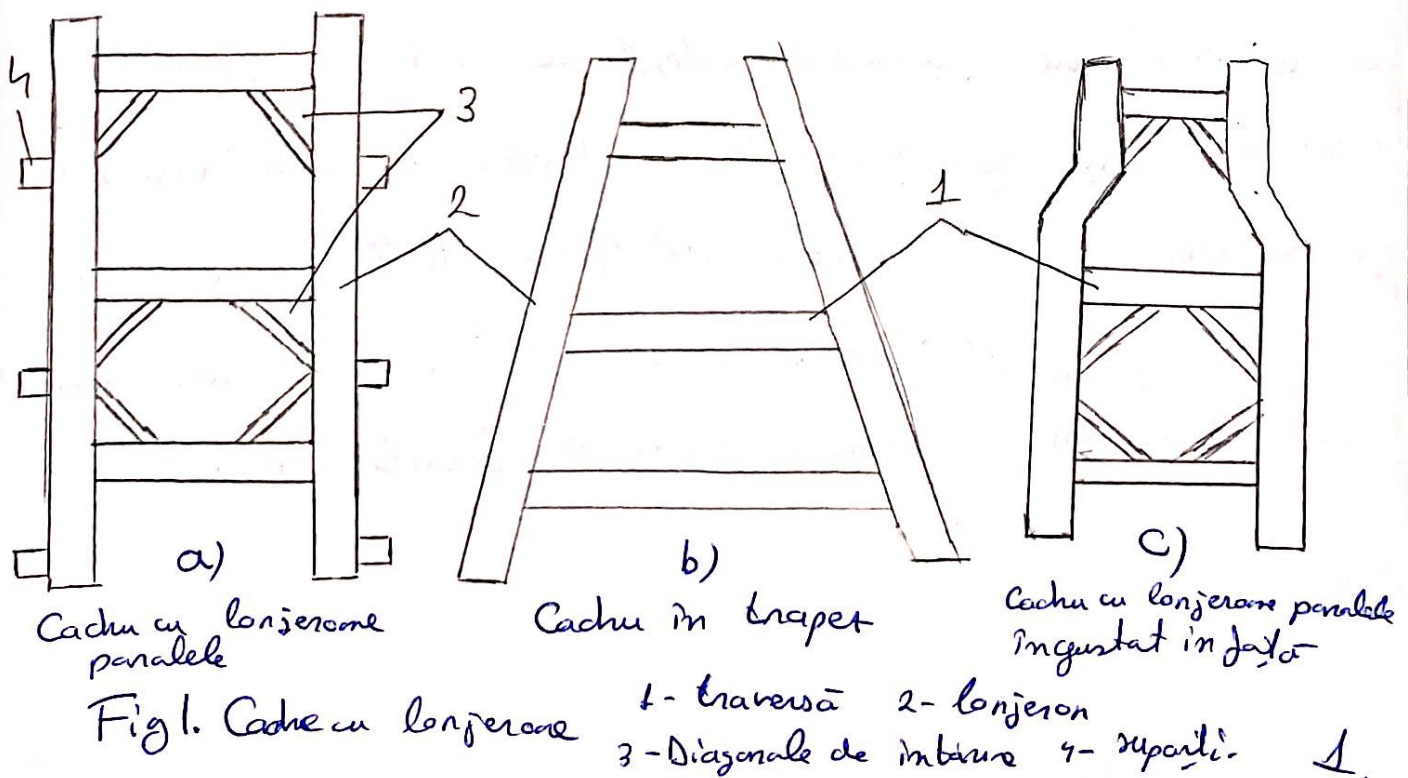 4
3
2
1
a)
b)
c)
Cadru cu lonjeroane
paralele
Cadru în trapez
Cadru cu lonjeroane paralele
îngustat în față
Fig 1. Cadre cu lonjeroane
1- traversă 2- lonjeron
3 -Diagonale de întărire 4- suporți.
1